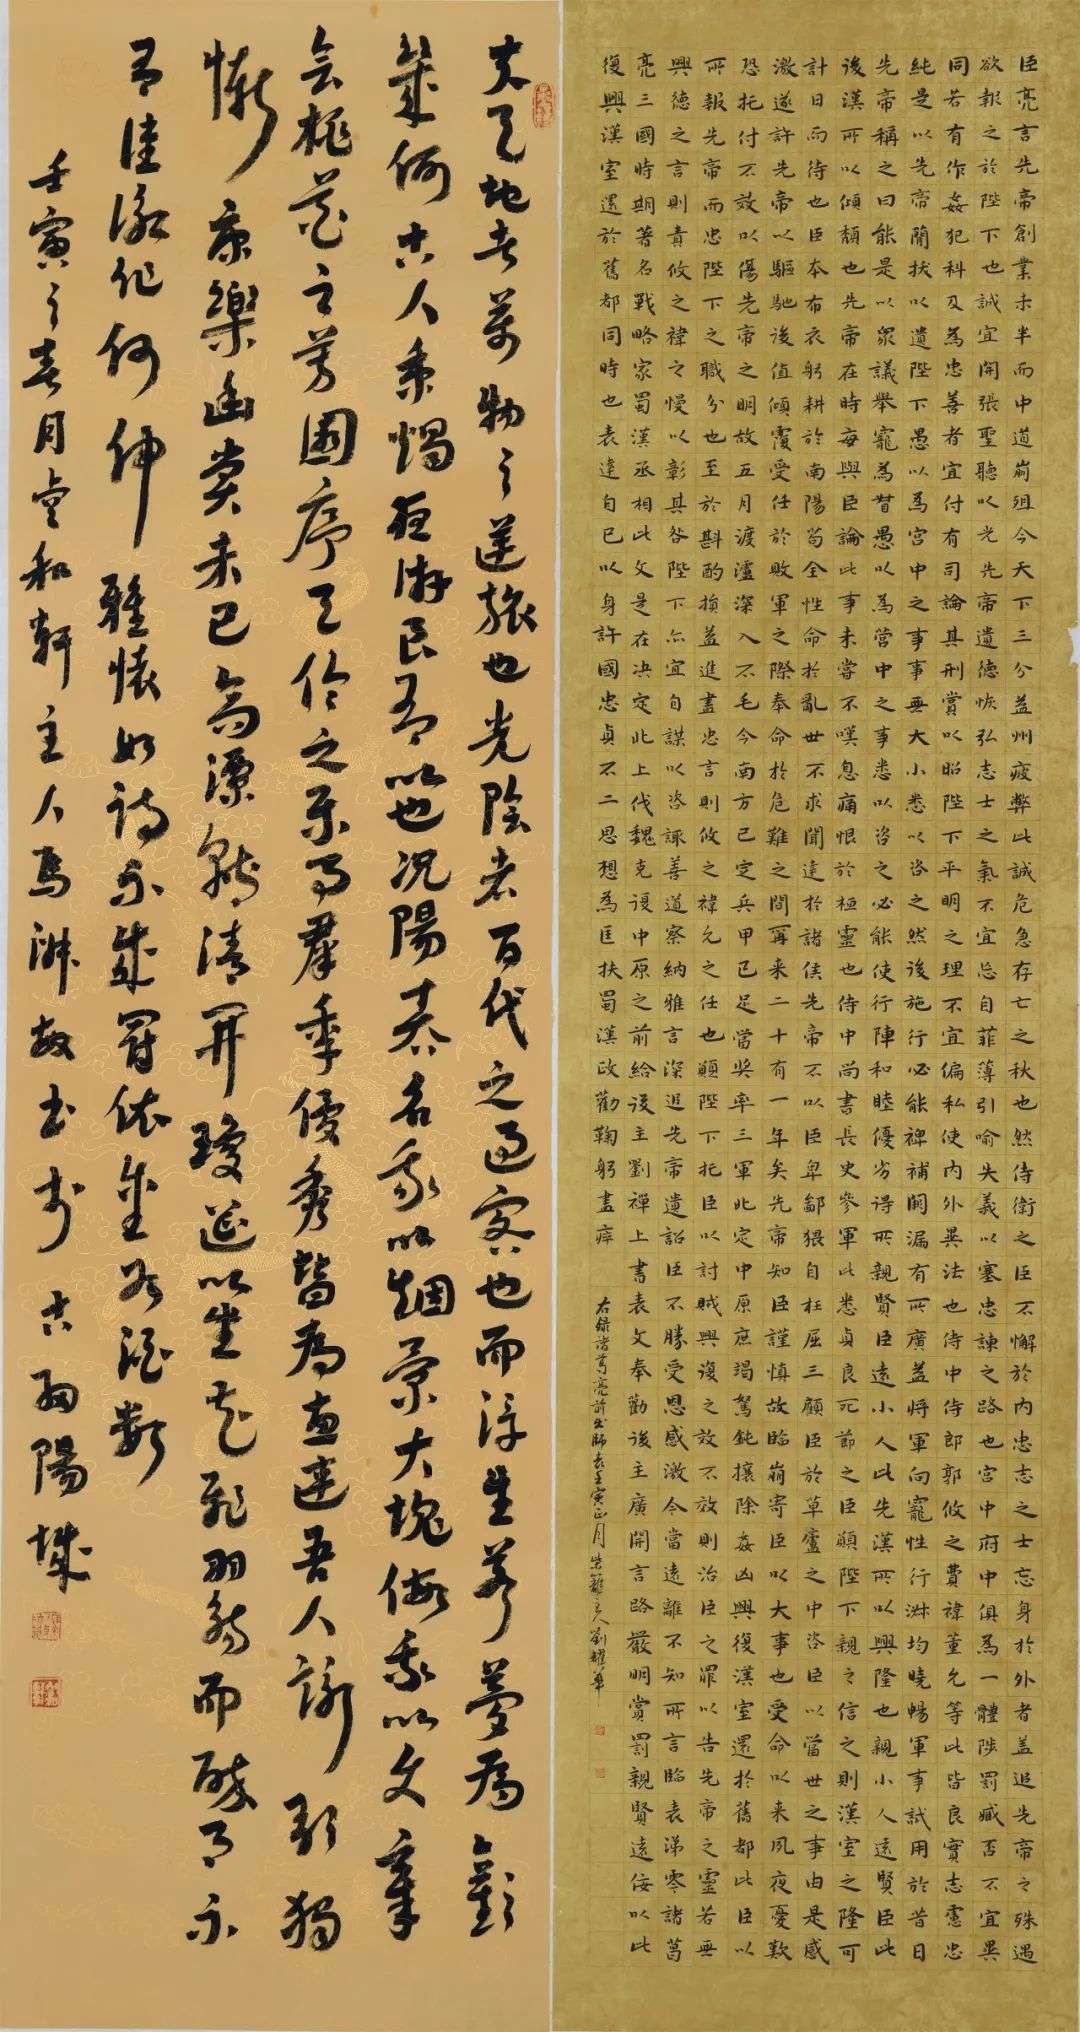 臣亮言先帝創業未半而中道崩殂今天下三分益州疲弊此誠危急存亡之秋也然侍衛之臣不懈於內忠志之士忘身於外者蓋追先帝之殊遇
欲報之於陛下也誠宜開張聖聽以光先帝遺德恢弘志士之氣不宜忘自菲薄引喻失義以塞忠諫之路也宮中府中俱為一體陟罰臧否不宜異
同若有作姦犯科及為忠善者宜付有司論其刑賞以昭陛下平明之理不宜偏私使內外異法也侍中侍郎郭攸之費禕董允等此皆良實志慮忠
純是以先帝蕳拔以遺陛下愚以為宮中之事事無大小悉以咨之然後施行必能裨補闕漏有所廣益將軍向寵性行淑均曉暢軍事試用於昔日
先帝稱之曰能是以眾議舉寵為督愚以為營中之事悉以咨之必能使行陣和睦優劣得所親賢臣遠小人此先漢所以興隆也親小人遠賢臣此
後漢所以傾頹也先帝在時每與臣論此事未嘗不嘆息痛恨於桓靈也侍中尚書長史參軍此悉貞良死節之臣願陛下親之信之則漢室之隆可
計日而待也臣本布衣躬耕於南陽苟全性命於亂世不求聞達於諸侯先帝不以臣卑鄙猥自枉屈三顧臣於草廬之中咨臣以當世之事由是感
激遂許先帝以驅馳後值傾覆受任於敗軍之際奉命於危難之間爾來二十有一年矣先帝知臣謹慎故臨崩寄臣以大事也受命以來夙夜憂歎
恐托付不效以傷先帝之明故五月渡瀘深入不毛今南方已定兵甲已足當獎率三軍北定中原庶竭駑鈍攘除姦凶興復漢室還於舊都此臣以
所報先帝而忠陛下之職分也至於斟酌損益進盡忠言則攸之禕允之任也願陛下托臣以討賊興復之效不效則治臣之罪以告先帝之靈若無
興德之言則責攸之禕之慢以彰其咎陛下亦宜自謀以咨諏善道察納雅言深追先帝遺詔臣不勝受恩感激今當遠離不知所言臨表涕零諸葛
亮三國時期著名戰略家蜀漢丞相此文是在決定北上代魏克復中原之前給後主劉禪上書表文奉勸後主廣開言路嚴明賞罰親賢遠佞以此
復興漢室還於舊都同時也表達自己以身許國忠貞不二思想為匡扶蜀漢政勸鞠躬盡瘁
右錄諸葛亮前出師表壬寅正月主人劉耀華
夫天地者萬物之逆旅也光陰者百代之過客也而浮生若夢為歡
幾何古人秉燭夜游良有以也況陽春召我以煙景大塊假我以文章
會桃花之芳園序天倫之樂事群季俊秀皆為惠連吾人詠歌獨
慚康樂幽賞未已高譚轉清開瓊筵以坐花飛羽觴而醉月不
有佳詠何伸雅懷如詩不成罰依金谷酒數
壬寅之春月壹和軒主人馬淋書於古陽城